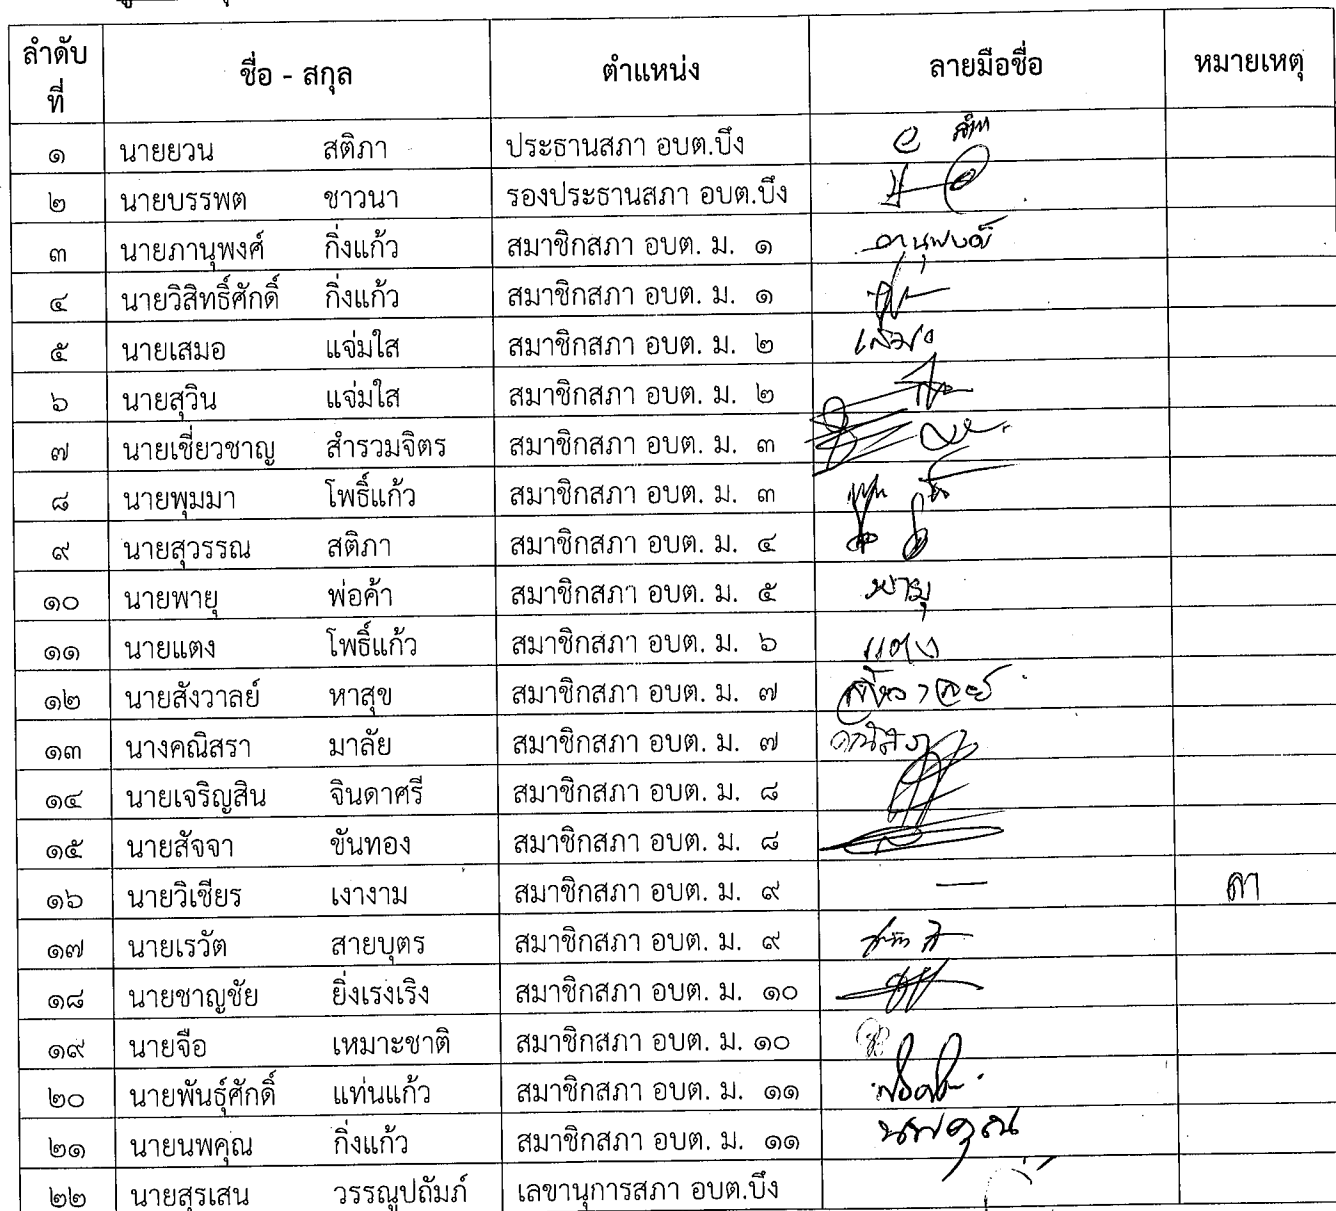 ลำดับที่ ชื่อ - สกุล ตำแหน่ง ลายมือชื่อ หมายเหตุ
๑ นายยวน สติภา ประธานสภา อบต.บึง
๒ นายบรรพต ชาวนา รองประธานสภา อบต.บึง
๓ นายภานุพงศ์ กิ่งแก้ว สมาชิกสภา อบต. ม. ๑ ภานุพงศ์
๔ นายวิสิทธิ์ศักดิ์ กิ่งแก้ว สมาชิกสภา อบต. ม. ๑
๕ นายเสมอ แจ่มใส สมาชิกสภา อบต. ม. ๒ เสมอ
๖ นายสุวิน แจ่มใส สมาชิกสภา อบต. ม. ๒
๗ นายเชี่ยวชาญ สำรวมจิตร สมาชิกสภา อบต. ม. ๓
๘ นายพุมมา โพธิ์แก้ว สมาชิกสภา อบต. ม. ๓
๙ นายสุวรรณ สติภา สมาชิกสภา อบต. ม. ๔
๑๐ นายพายุ พ่อค้า สมาชิกสภา อบต. ม. ๕ พายุ
๑๑ นายแตง โพธิ์แก้ว สมาชิกสภา อบต. ม. ๖ แตง
๑๒ นายสังวาลย์ หาสุข สมาชิกสภา อบต. ม. ๗ สังวาลย์
๑๓ นางคณิสรา มาลัย สมาชิกสภา อบต. ม. ๗ คณิสรา
๑๔ นายเจริญสิน จินดาศรี สมาชิกสภา อบต. ม. ๘
๑๕ นายสัจจา ขันทอง สมาชิกสภา อบต. ม. ๘
๑๖ นายวิเชียร เงางาม สมาชิกสภา อบต. ม. ๙ — ลา
๑๗ นายเรวัต สายบุตร สมาชิกสภา อบต. ม. ๙
๑๘ นายชาญชัย ยิ่งเรงเริง สมาชิกสภา อบต. ม. ๑๐
๑๙ นายจือ เหมาะชาติ สมาชิกสภา อบต. ม. ๑๐
๒๐ นายพันธุ์ศักดิ์ แท่นแก้ว สมาชิกสภา อบต. ม. ๑๑
๒๑ นายนพคุณ กิ่งแก้ว สมาชิกสภา อบต. ม. ๑๑ นพคุณ
๒๒ นายสุรเสน วรรณูปถัมภ์ เลขานุการสภา อบต.บึง